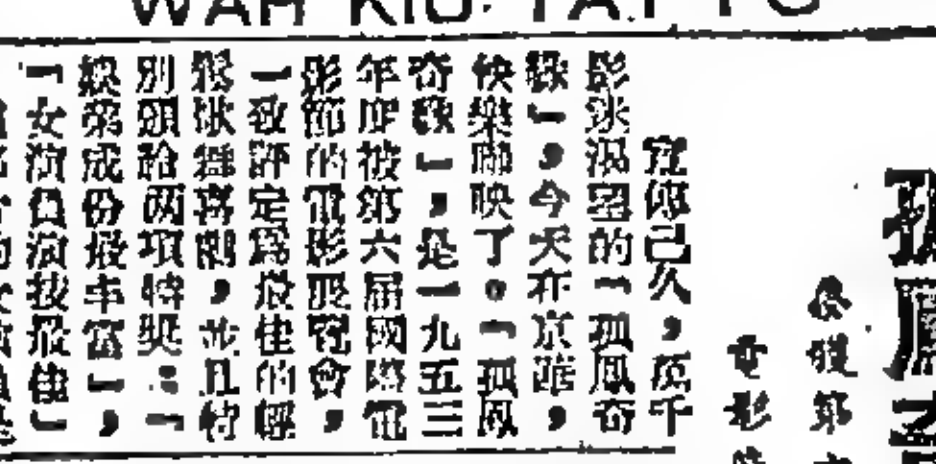 WAH KIU YAT PO
孤鳳奇
榮獲第六
電影
宣傳已久,萬千
影迷渴望的「孤鳳奇
緣」,今天在京華,
快樂聯映了。「孤鳳
奇緣」,是一九五三
年度被第六屆國際電
影節的電影研究會,
一致評定為最佳的輕
鬆歌舞喜劇,並且特
別頒給兩項特獎:「
娛樂成份最丰富」,
「女演員演技最佳」